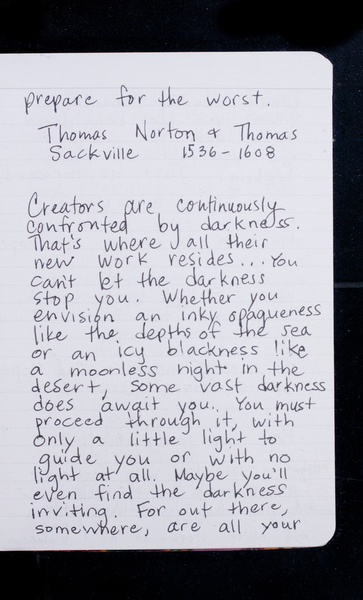 prepare for the worst.
Thomas Norton & Thomas
Sackville 1536-1608
Creators are continuously
confronted by darkness.
That's where all their
new work resides... You
can't let the darkness
stop you. Whether you
envision an inky opaqueness
like the depths of the sea
or an icy blackness like
a moonless night in the
desert, some vast darkness
does await you. You must
proceed through it, with
only a little light to
guide you or with no
light at all. Maybe you'll
even find the darkness
inviting. For out there,
somewhere, are all your